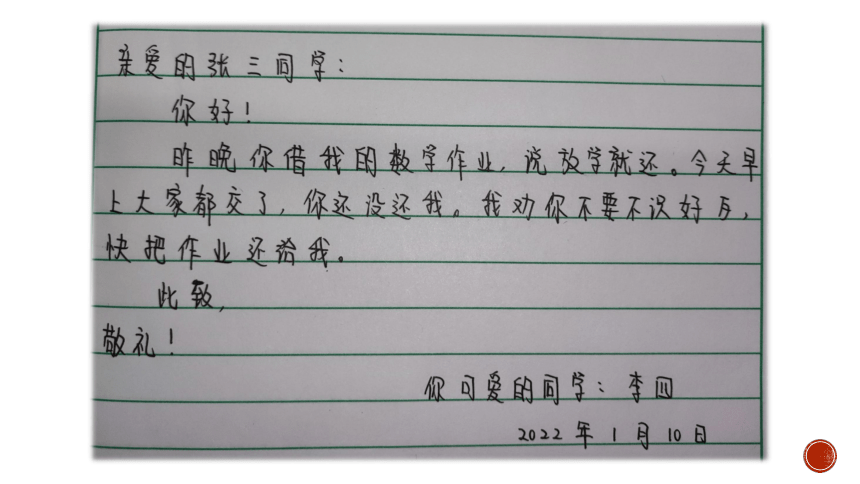 亲爱的张三同学：
你好！
昨晚你借我的数学作业，说放学就还。今天早
上大家都交了，你还没还我。我劝你不要不识好歹，
快把作业还给我。
此致，
敬礼！
你可爱的同学：李四
2022年1月10日